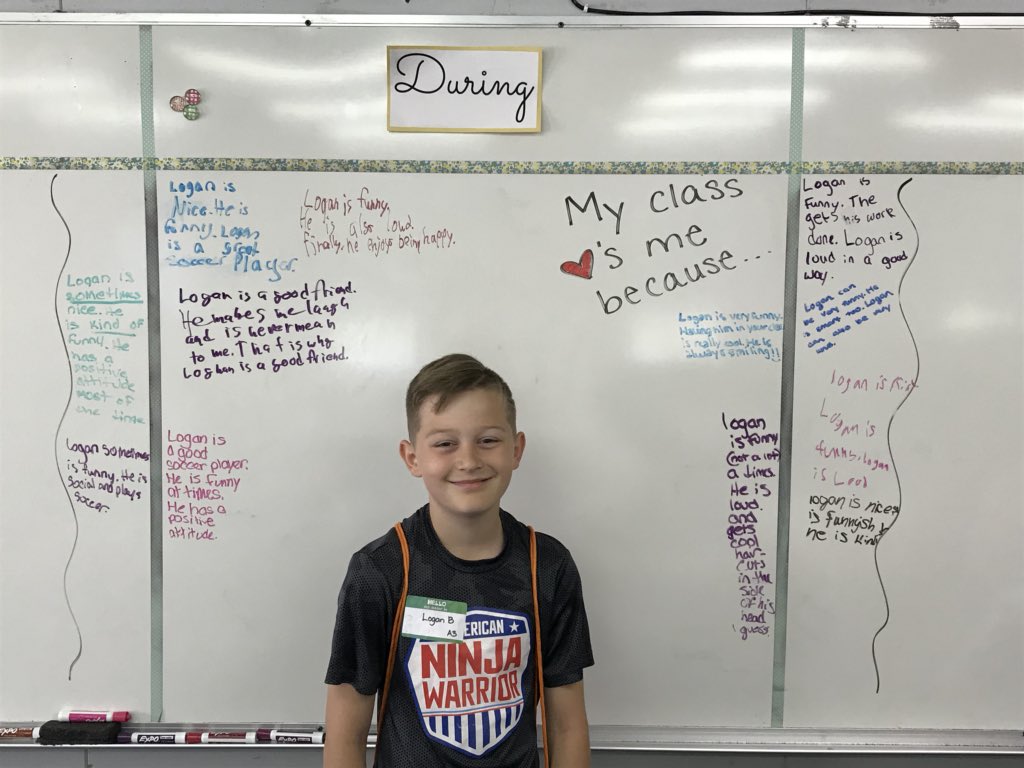 During
My class
's me
because...
Logan is
sometimes
nice. He
is kind of
funny. He
has a
positive
attitude
most of
the time
Logan sometimes
is funny. He is
social and plays
soccer.
Logan is
Nice. He is
funny. Logan
is a great
soccer Player.
Logan is funny.
He is also loud.
finally, he enjoys being happy.
Logan is a good friend.
He makes me laugh
and is never mean
to me. That is why
Loghan is a good friend.
Logan is
a good
soccer player.
He is funny
at times.
He has a
positive
attitude.
Logan is very funny.
Having him in your class
is really cool. He is
always smiling!!
logan
is funny
(not a lot)
a times.
He is
loud.
and
gets
cool
hair-
cuts
in the
side
of his
head
guess
Logan is
Funny. The
gets his work
done. Logan is
loud in a good
way.
Logan can
be very funny. He
is smart too. Logan
can also be very
Logan is
Logan is
funny. Logan
is Loud
logan is nice
is funnyish
he is kind
HELLO
Logan B
A3
ERICAN
NINJA
WARRIOR
EXPO
EXPO
EXPO
EXPO